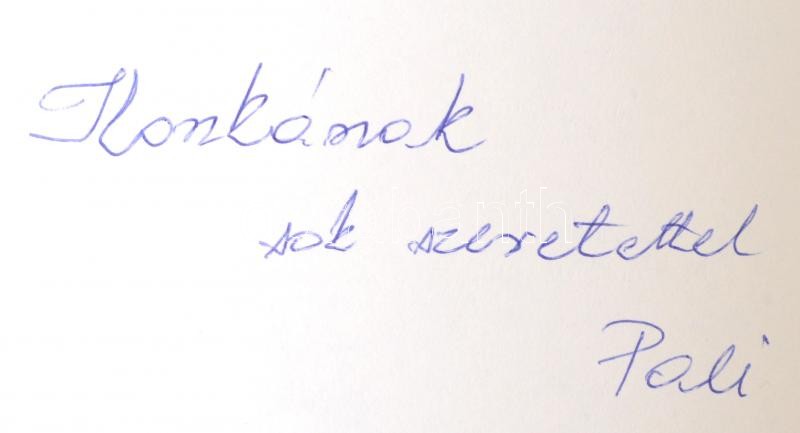 Ilonkának
sok szeretettel
Pali